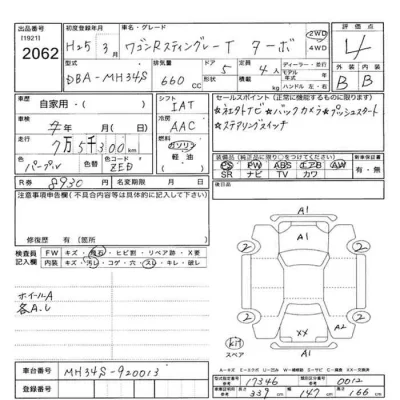 出品番号 [1921] 2062
初度登録年月 H25年3月
車名・グレード ワゴンRスティングレー T ターボ
2WD 4WD
評価点 4
型式 DBA-MH34S
排気量 660 CC
ドア 5
定員 4人
積載量 kg
ディーラー・並行
モデル年式 年
ハンドル 左・右
外装 内装
B B
車歴 自家用・( )
シフト IAT
セールスポイント(正常に機能するものに限ります)
☆ネェクトナビ☆バックカメラ☆プッシュスタート
☆ステアリングスイッチ
車検 年 月
冷房 AAC
走行 7万5千300km
燃料 ガソリン 軽油 ( )
色 パープル 色替
色コード ZED
装備品(純正品に限り○をつけてください)
PS PW ABS エアB AW
SR ナビ TV カワ
新車保証書 有・無
R券 8930円
名変期限 月 日
後日品
注意事項申告欄(不具合内容等は具体的に記入して下さい)
修復歴 有(箇所 )
検査員記入欄
FW キズ・飛石・ヒビ割・リペア跡・X要
内装 キズ・汚レ・コゲ・穴・スレ・キレ・破レ
ホイールA
各A.U
A1
A1
2 2
2 2
XX
A2
A1
kit
スペア
A=キズ E=エクボ U=凹み W=補修跡 S=サビ C=腐食 XX=交換済
車台番号 MH34S-920013
登録番号
型式指定番号 参考 17346
類別区分番号 参考 0012
長さ 339 cm
幅 147 cm
高さ 166 cm